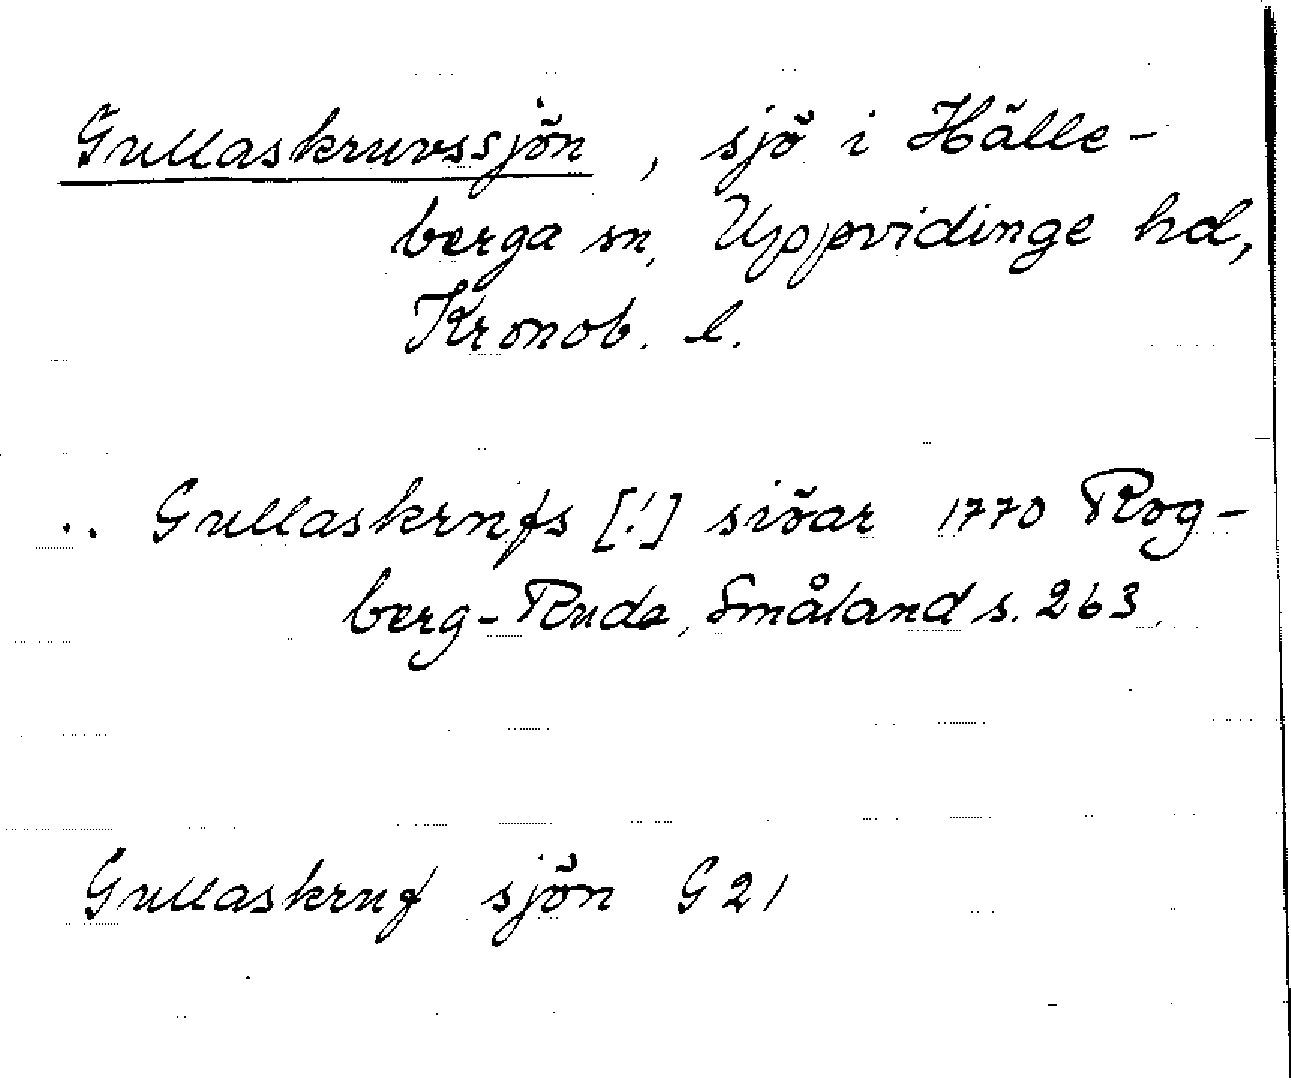 Gullaskruvssjön, sjö i Hälle-
berga sn, Uppvidinge hd,
Kronob. l.
.. Gullaskrufs [!] siöar 1770 Rog-
berg-Ruda, Småland s. 263.
Gullaskruf sjön G 21